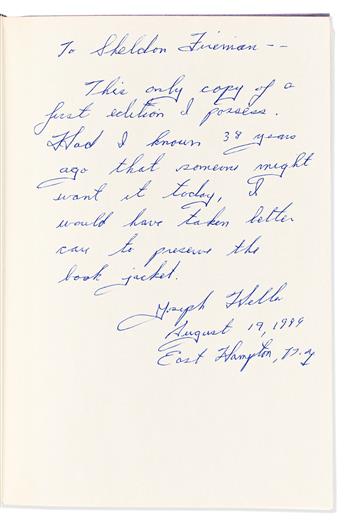 To Sheldon Fireman --
This only copy of a
first edition I possess.
Had I known 38 years
ago that someone might
want it today, I
would have taken better
care to preserve the
book jacket.
Joseph Heller
August 19, 1999
East Hampton, N.Y